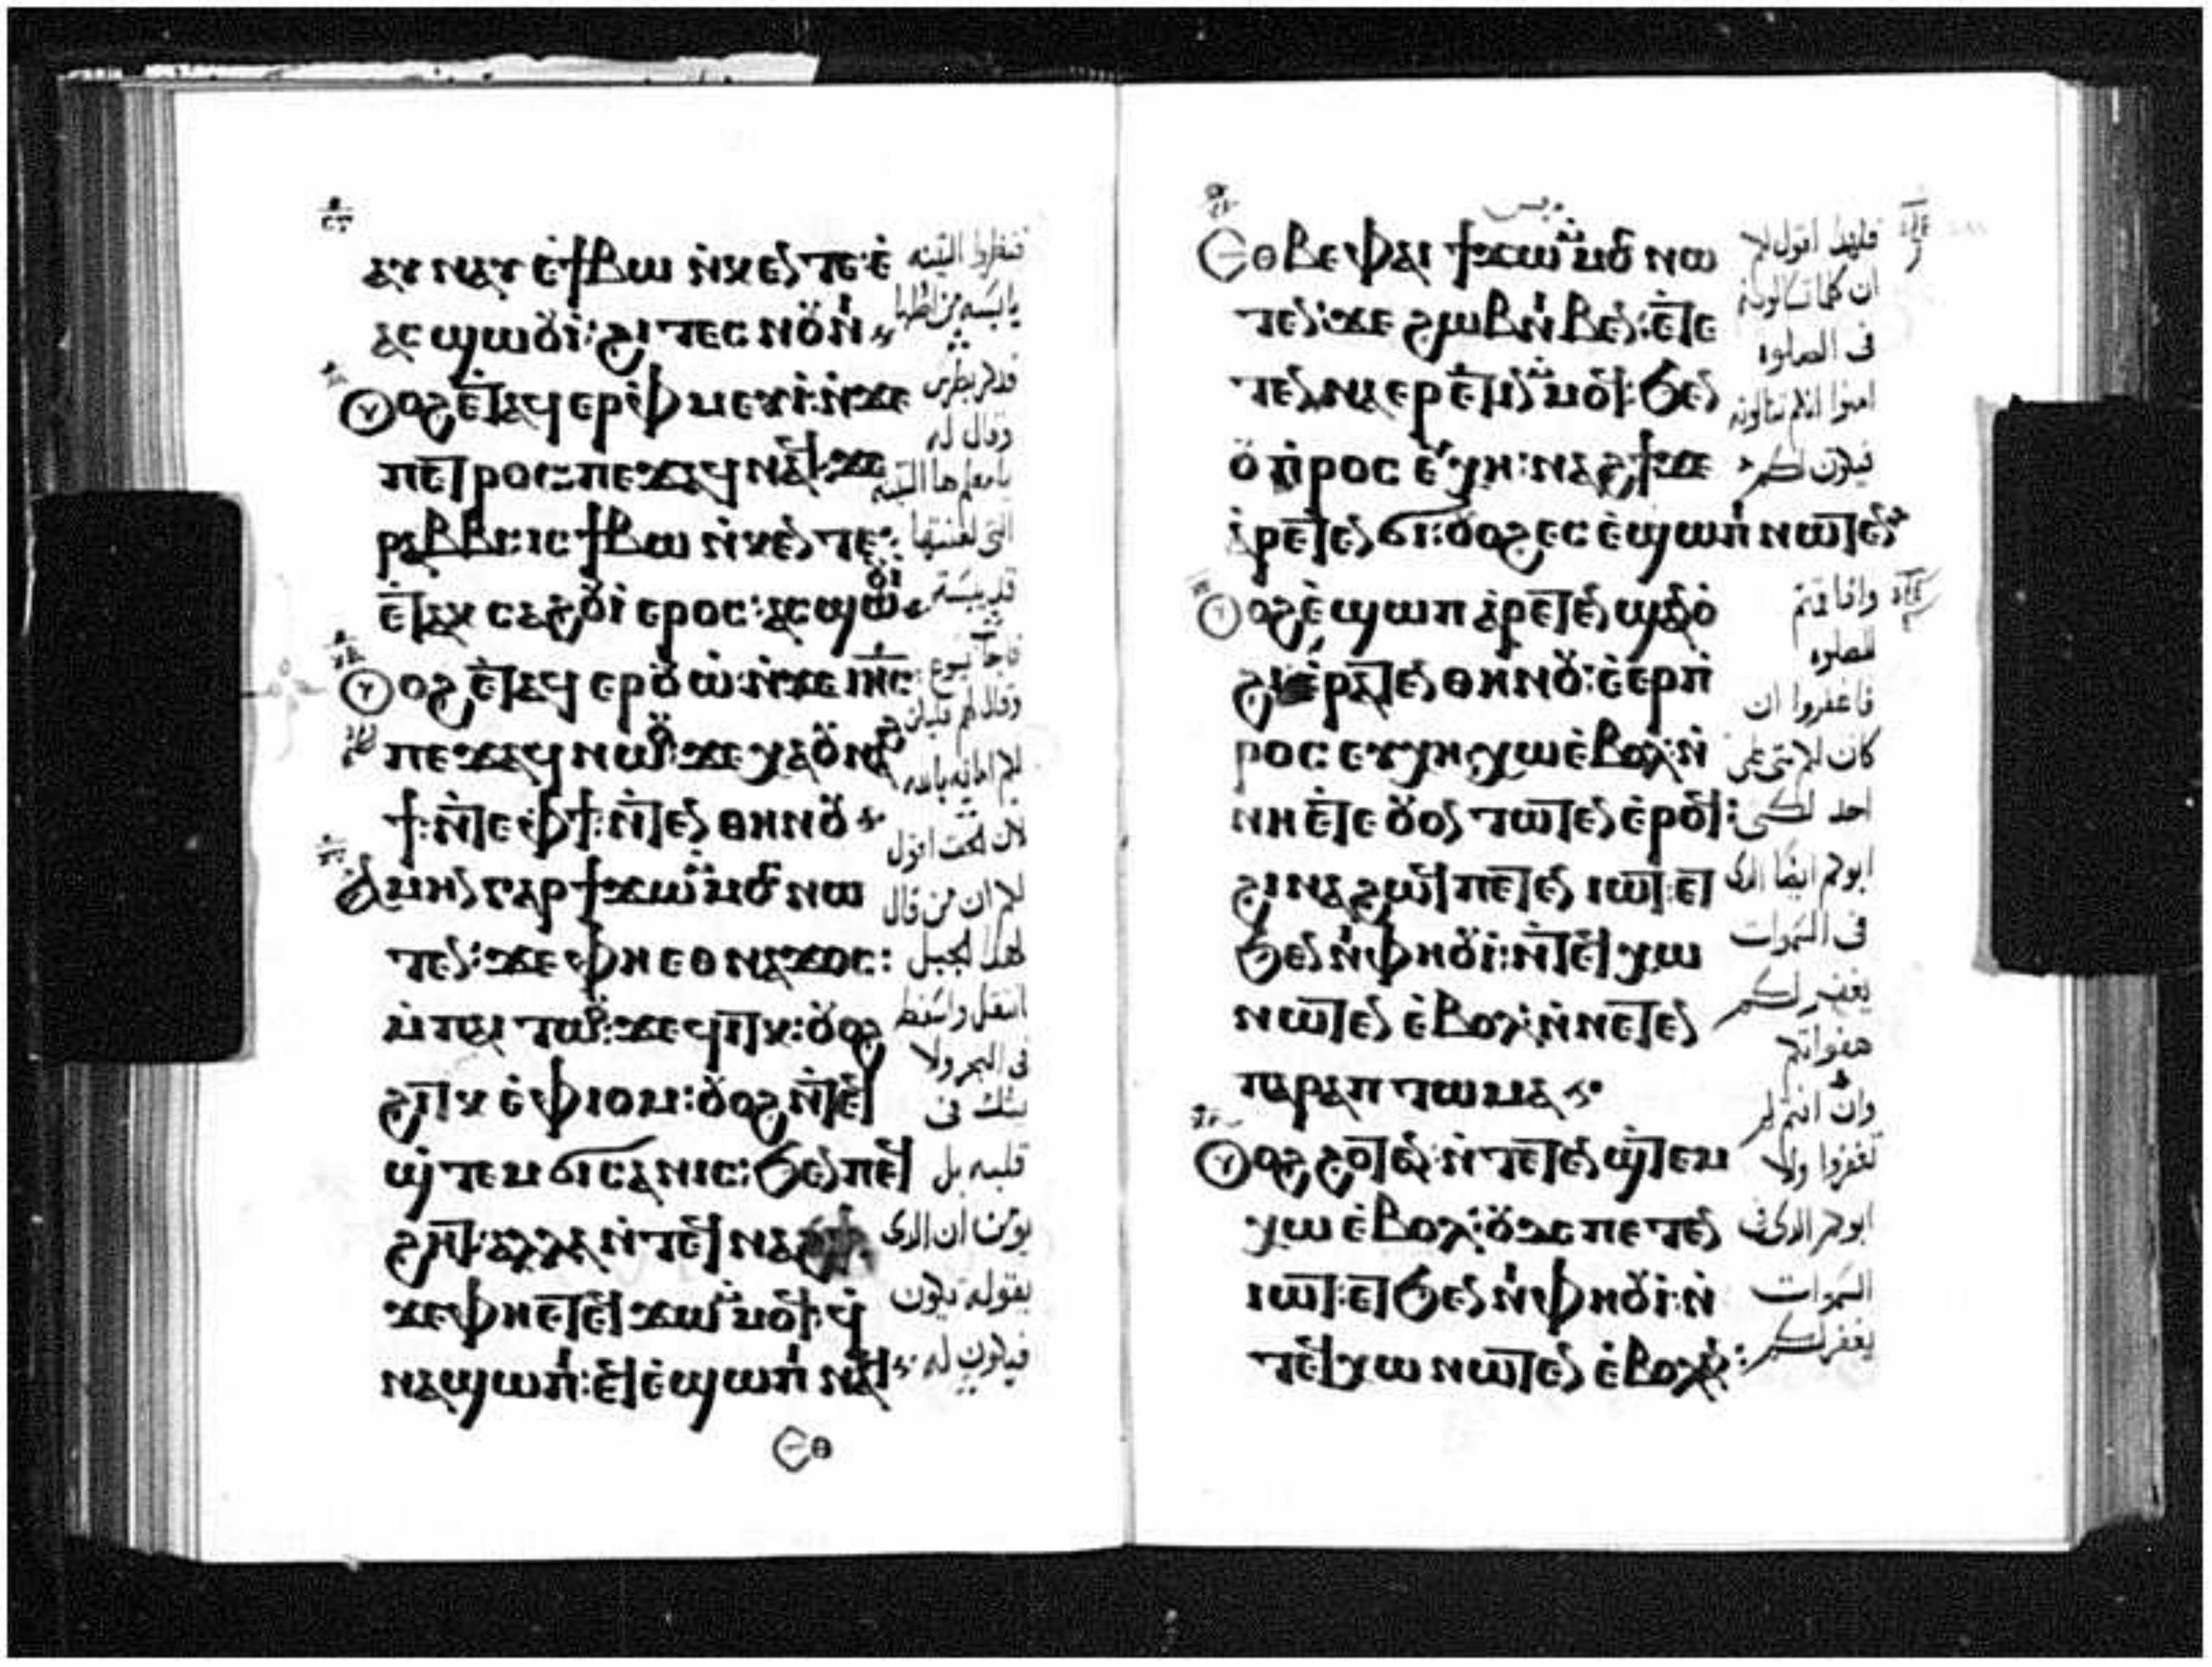 ⲁⲩ ⲛⲁⲩ ⲉ̀ϯⲃⲱ ⲛ̀ⲕⲉⲛⲧⲉ:ⲉ̀
ⲁⲥ ϣⲱⲟⲩⲓ̀: ϩⲓ ⲧⲉⲥ ⲛⲟⲩⲛⲓ
ⲟⲩⲟϩ ⲉ̀ⲧⲁϥ ⲉⲣⲫⲙⲉⲩⲓ̀: ⲛ̀ϫⲉ
ⲡⲉⲧⲣⲟⲥ: ⲡⲉϫⲁϥ ⲛⲁϥ: ϫⲉ
ⲣⲁⲃⲃⲓ: ⲓⲥ ϯⲃⲱ ⲛ̀ⲕⲉⲛⲧⲉ:
ⲉ̀ⲧⲁⲕ ⲥⲁϩⲟⲩⲓ̀ ⲉⲣⲟⲥ: ⲁⲥϣⲱⲟⲩⲓ
ⲟⲩⲟϩ ⲉ̀ⲧⲁϥ ⲉⲣⲟⲩⲱ̀: ⲛ̀ϫⲉ ⲓⲏⲥ:
ⲡⲉϫⲁϥ ⲛⲱⲟⲩ: ϫⲉ ⲭⲁⲟⲩⲛⲁϩ
ϯ: ⲛ̀ⲧⲉ ⲫϯ: ⲛ̀ⲧⲉⲛ ⲑⲏⲛⲟⲩ
ⲁⲙⲏⲛ ⲅⲁⲣ ϯϫⲱ ⲙ̀ⲙⲟⲥ ⲛⲱ
ⲧⲉⲛ: ϫⲉ ⲫⲏ ⲉⲑⲛⲁϫⲟⲥ:
ⲙ̀ⲡⲁⲓ ⲧⲱⲟⲩ: ϫⲉ ϥⲓⲧⲕ: ⲟⲩⲟϩ
ϩⲓⲧⲕ ⲉ̀ⲫⲓⲟⲙ: ⲟⲩⲟϩ ⲛ̀ⲧⲉϥ
ϣⲧⲉⲙ ϭⲓⲥⲁⲛⲓⲥ: ϧⲉⲛ ⲡⲉϥ
ϩⲏⲧ: ⲁⲗⲗⲁ ⲛ̀ⲧⲉϥ ⲛⲁϩϯ:
ϫⲉ ⲫⲏ ⲉⲧⲉϥ ϫⲱ ⲙ̀ⲙⲟϥ: ϥ̀
ⲛⲁϣⲱⲡⲓ: ⲉϥⲉ̀ϣⲱⲡⲓ ⲛⲁϥ
ⲉⲑ
فنظروا التينه
يابسه من اصلها
فذكر بطرس
وقال له
يامعلم ها التينه
التى لعنتها
قد يبست
فاجاب يسوع
لان الحق اقول
لكم ان من قال
لهذا الجبل
انتقل واسقط
فى البحر ولا
يشك فى
قلبه بل
يومن ان الذى
يقوله يكون
فيكون له
ⲉⲑⲃⲉ ⲫⲁⲓ ϯϫⲱ ⲙ̀ⲙⲟⲥ ⲛⲱ
ⲧⲉⲛ: ϫⲉ ϩⲱⲃ ⲛⲓⲃⲉⲛ: ⲉ̀ⲧⲉ
ⲧⲉⲛⲛⲁⲉⲣⲉ̀ⲧⲓⲛ ⲙ̀ⲙⲟϥ: ϧⲉⲛ
ⲟⲩ ⲡⲣⲟⲥ ⲉⲩⲭⲏ: ⲛⲁϩϯ ϫⲉ
ⲁ̀ⲣⲉⲧⲉⲛ ϭⲓ: ⲟⲩⲟϩ ⲉⲥⲉ̀ϣⲱⲡⲓ ⲛⲱⲧⲉⲛ
ⲟⲩⲟϩ ⲉ̀ϣⲱⲡ ⲁ̀ⲣⲉⲧⲉⲛ ϣⲁⲛⲟ̀
ϩⲓ ⲉ̀ⲣⲁⲧⲉⲛ ⲑⲏⲛⲟⲩ: ⲉ̀ⲉⲣⲡ̀
ⲣⲟⲥ ⲉⲩⲭⲏ ⲭⲱ ⲉ̀ⲃⲟⲗ: ⲛ̀
ⲛⲏ ⲉ̀ⲧⲉ ⲟⲩⲟⲛ ⲧⲱⲧⲉⲛ ⲉ̀ⲣⲟϥ:
ϩⲓⲛⲁ ϩⲱϥ ⲡⲉⲧⲉⲛ ⲓⲱⲧ: ⲉⲧ
ϧⲉⲛ ⲛⲓⲫⲏⲟⲩⲓ̀: ⲛ̀ⲧⲉϥ ⲭⲱ
ⲛⲱⲧⲉⲛ ⲉ̀ⲃⲟⲗ: ⲛ̀ⲛⲉⲧⲉⲛ
ⲡⲁⲣⲁⲡⲧⲱⲙⲁ
ⲟⲩⲟϩ ϩⲟⲧⲁⲛ: ⲛ̀ⲧⲉⲧⲉⲛ ϣ̀ⲧⲉⲙ
ⲭⲱ ⲉ̀ⲃⲟⲗ: ⲟⲩⲇⲉ ⲡⲉⲧⲉⲛ
ⲓⲱⲧ: ⲉⲧ ϧⲉⲛ ⲛⲓⲫⲏⲟⲩⲓ̀: ⲛ̀
ⲧⲉϥ ⲭⲱ ⲛⲱⲧⲉⲛ ⲉ̀ⲃⲟⲗ:
فلهذا اقول لكم
ان كلما تسالونه
فى الصلوه
امنوا انكم تنالونه
فيكون لكم
واذا قمتم
للصلوه
فاغفروا ان
كان لكم شى على
احد لكى
ابوكم ايضا الذى
فى السموات
يغفر لكم
هفواتكم
وان انتم لم
تغفروا ولا
ابوكم الذى فى
السموات
يغفر لكم